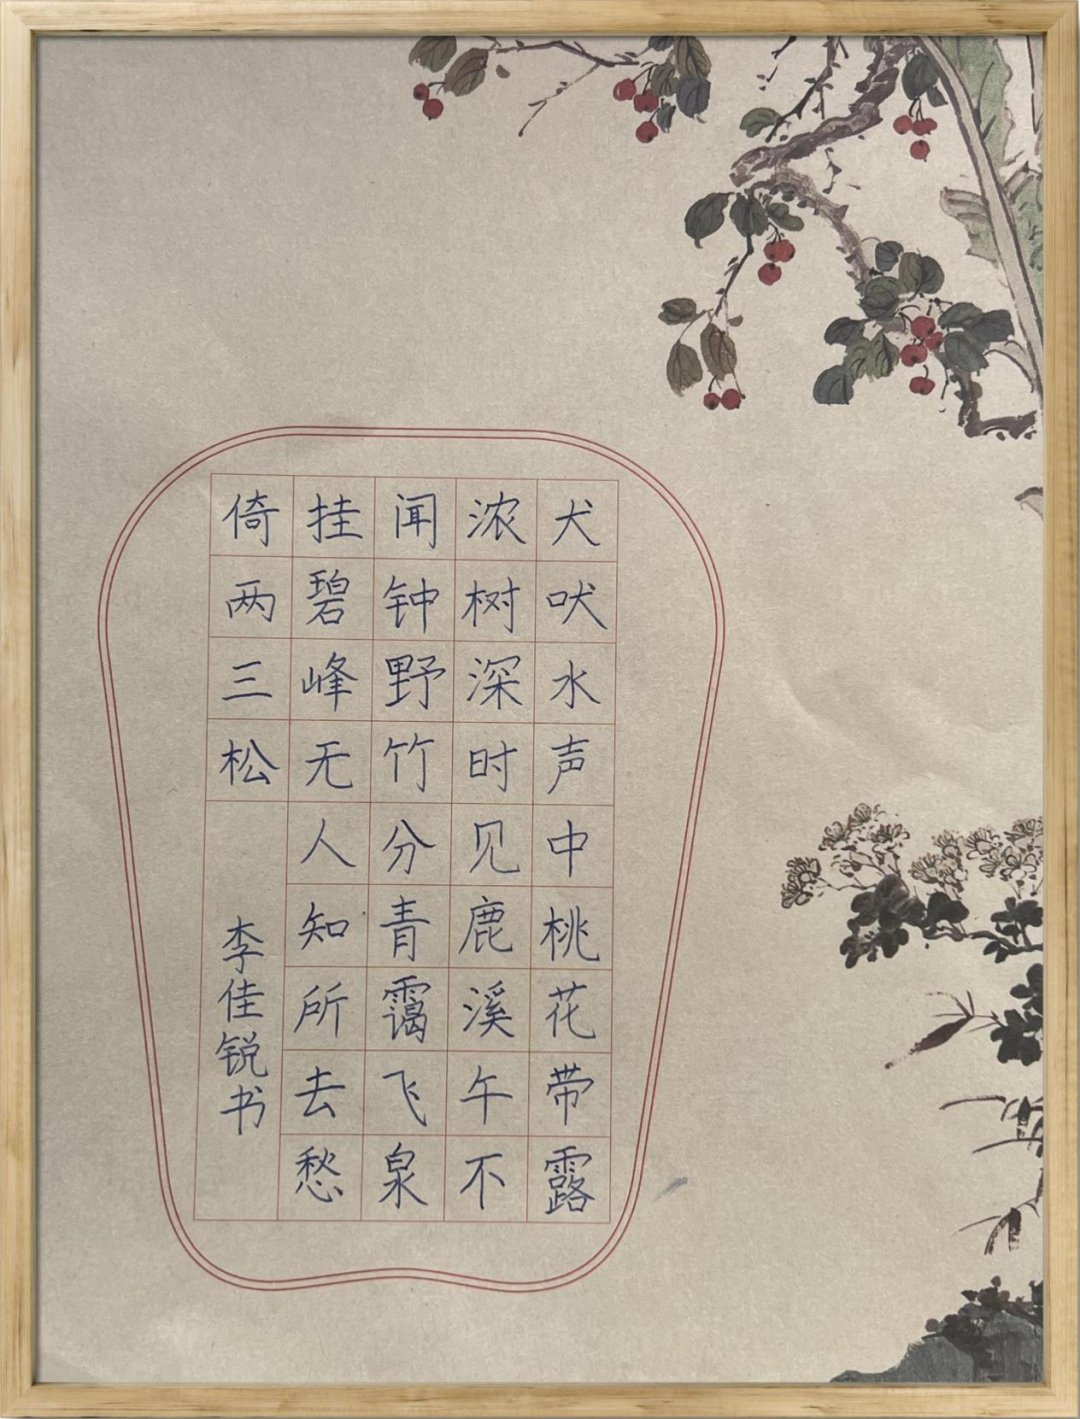 犬吠水声中桃花带露
浓树深时见鹿溪午不
闻钟野竹分青霭飞泉
挂碧峰无人知所去愁
倚两三松
李佳锐书